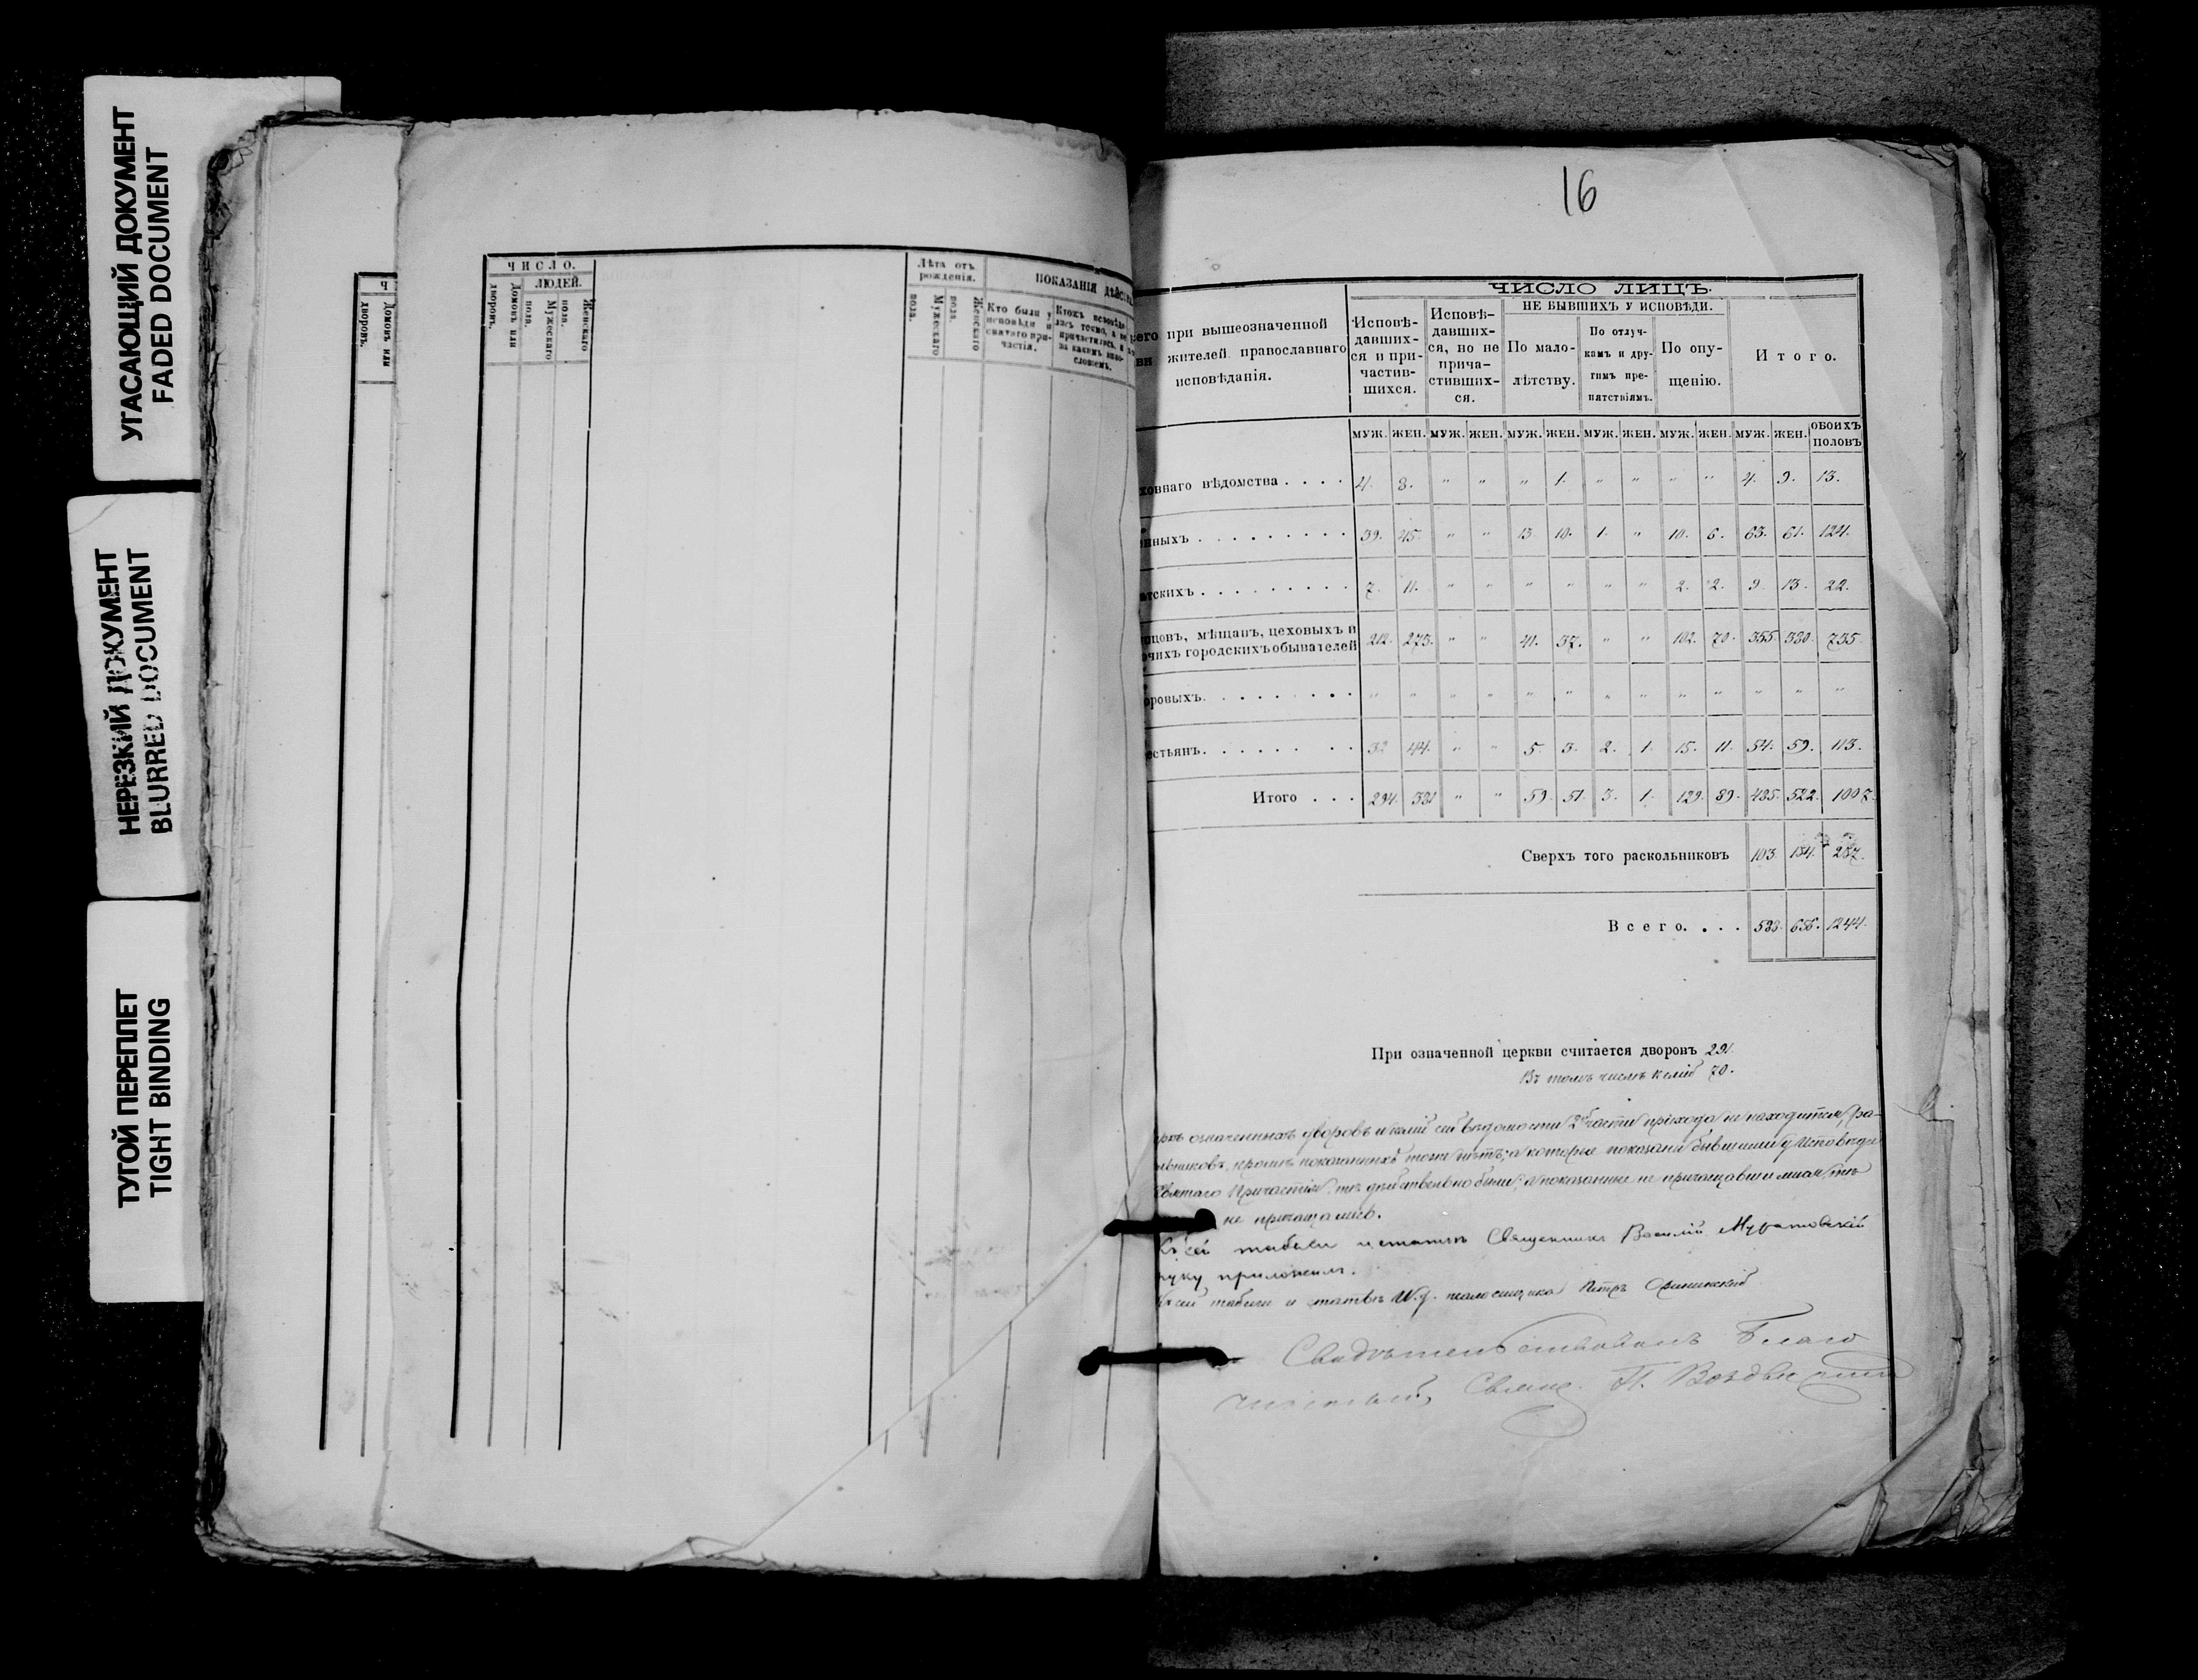 УГАСАЮЩИЙ ДОКУМЕНТ
FADED DOCUMENT
НЕРЕЗКИЙ ДОКУМЕНТ
BLURRED DOCUMENT
ТУГОЙ ПЕРЕПЛЕТ
TIGHT BINDING
Ч
Домовъ или
дворовъ.
ЧИСЛО.
Домовъ или
дворовъ.
ЛЮДЕЙ.
Мужескаго
пола.
Женскаго
пола.
Лѣта отъ
рожденія.
Мужескаго
пола.
Женскаго
пола.
ПОКАЗАНІЯ ДѢЙСТ
Кто были у
исповѣди и
святаго при-
частія.
16
ЧИСЛО ЛИЦЪ.
при вышеозначенной
жителей православнаго
исповѣданія.
Исповѣ-
давших-
ся и при-
частив-
шихся.
Исповѣ-
давших-
ся, но не
прича-
стивших-
ся.
НЕ БЫВШИХЪ У ИСПОВѢДИ.
По мало-
лѣтству.
По отлуч-
камъ и дру-
гимъ пре-
пятствіямъ.
По опу-
щенію.
Итого.
МУЖ. ЖЕН. МУЖ. ЖЕН. МУЖ. ЖЕН. МУЖ. ЖЕН. МУЖ. ЖЕН. МУЖ. ЖЕН. ОБОИХЪ ПОЛОВЪ
ховнаго вѣдомства . . . . 4. 8. " " " 1. " " " " 4. 9. 13.
нныхъ . . . . . . . . . 39. 45. " " 13. 10. 1. " 10. 6. 63. 61. 124.
тскихъ . . . . . . . . . 7. 11. " " " " " " 2. 2. 9. 13. 22.
пцовъ, мѣщанъ, цеховыхъ и
очихъ городскихъ обывателей 212. 273. " " 41. 37. " " 102. 70. 355. 380. 735.
оровыхъ. . . . . . . . . " " " " " " " " " " " " "
естьянъ. . . . . . . . 32 44. " " 5. 3. 2. 1. 15. 11. 54. 59. 113.
Итого . . . 294. 381 " " 59. 51. 3. 1. 129. 89. 485. 522. 1007.
Сверхъ того раскольниковъ 103. 134. 237.
Всего. . . . 588. 656. 1244.
При означенной церкви считается дворовъ 291.
Въ томъ числѣ келій 70.
означенныхъ дворовъ и келій сей вѣдомости 2й части прихода не находится, ра-
кромѣ показанныхъ тоже нѣтъ; а которые показаны бывшими у Исповѣди
Святаго Причастія, тѣ дѣйствительно были; а показанные не причащавшимися, тѣ
не причащались.
Къ сей табели и статьѣ Священникъ Василій Муратовскій
руку приложилъ.
Къ сей табели и статьѣ И.д. псаломщика Петръ
Свидѣтельствовалъ Благо
чинный, Свящ. П.